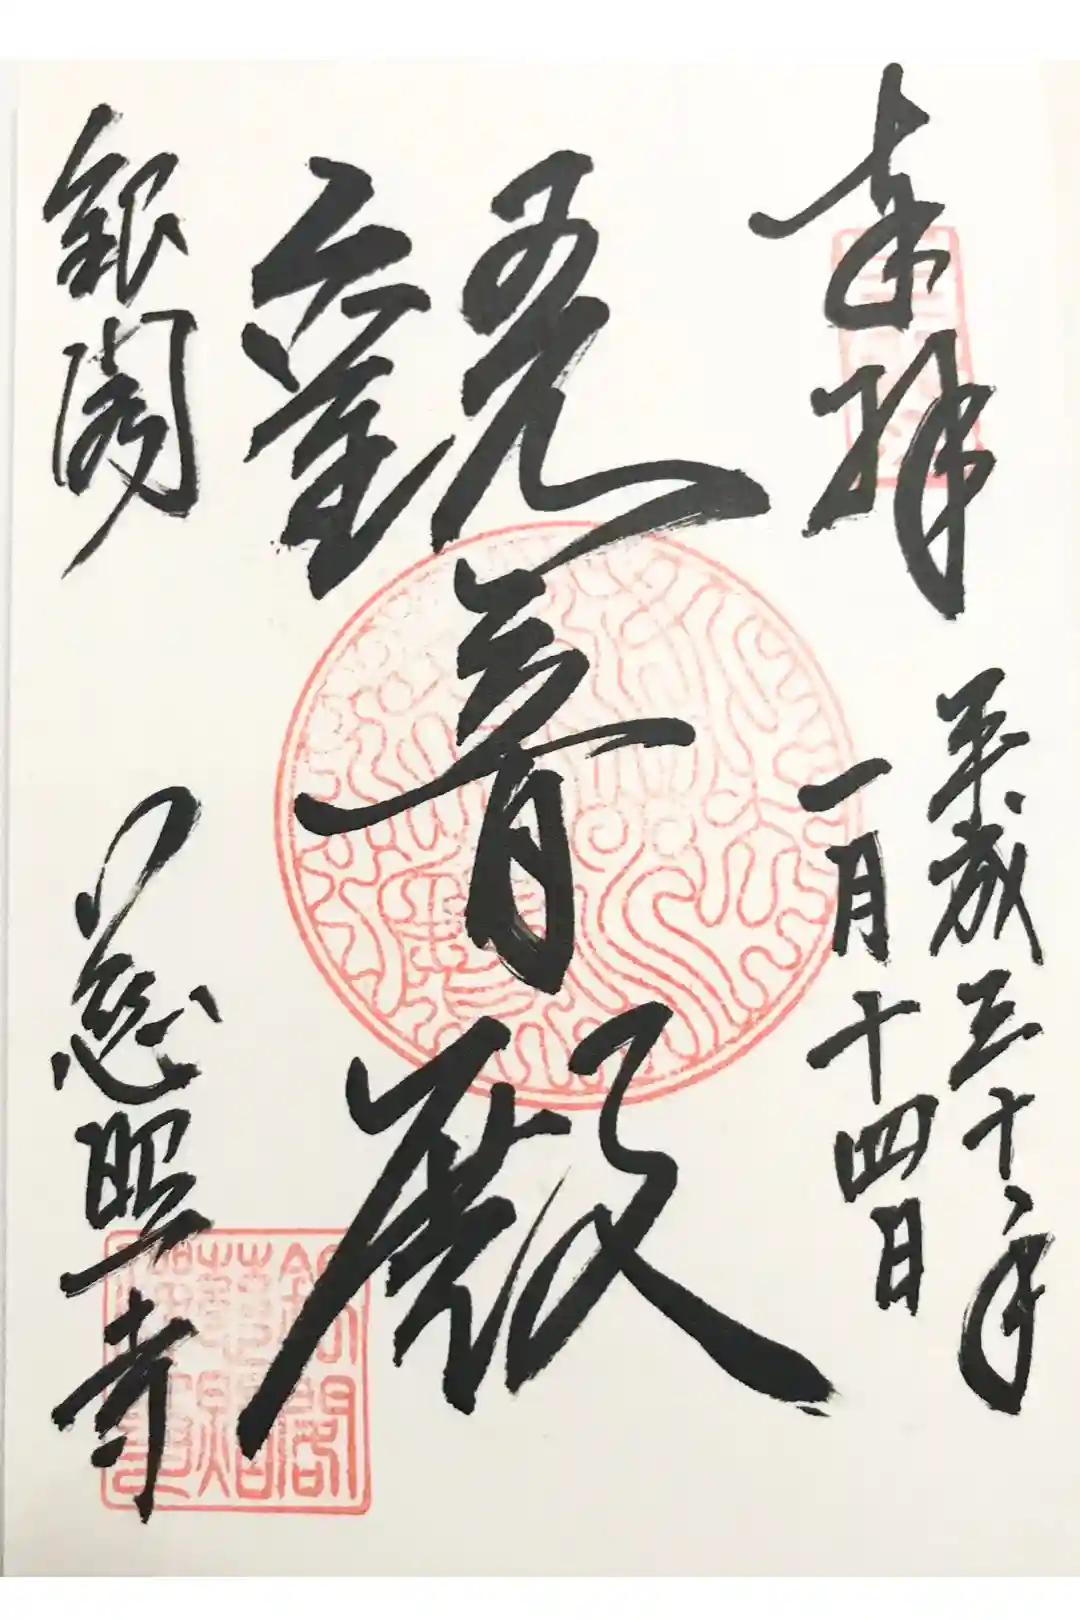 奉拝
平成三十年
一月十四日
觀音殿
銀閣
慈照寺